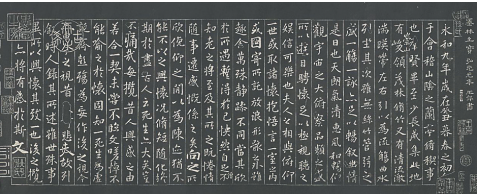 永和九年歲在癸丑暮春之初會
于會稽山陰之蘭亭脩稧事
也群賢畢至少長咸集此地
有崇領茂林脩竹又有清流激
湍暎帶左右引以為流觴曲水
列坐其次雖無絲竹管弦之
盛一觴一詠亦足以暢敘幽情
是日也天朗氣清惠風和暢仰
觀宇宙之大俯察品類之盛
所以遊目騁懷足以極視聽之
娛信可樂也夫人之相與俯仰
一世或取諸懷抱悟言一室之內
或因寄所託放浪形骸之外雖
趣舍萬殊靜躁不同當其欣
於所遇暫得於己怏然自足不
知老之將至及其所之既惓情
隨事遷感慨係之矣向之所
欣俛仰之閒以為陳迹猶不
能不以之興懷況脩短隨化終
期於盡古人云死生亦大矣豈
不痛哉每攬昔人興感之由
若合一契未嘗不臨文嗟悼不
能喻之於懷固知一死生為虛
誕齊彭殤為妄作後之視今
亦由今之視昔悲夫故列
敘時人錄其所述雖世殊事
異所以興懷其致一也後之攬
者亦將有感於斯文